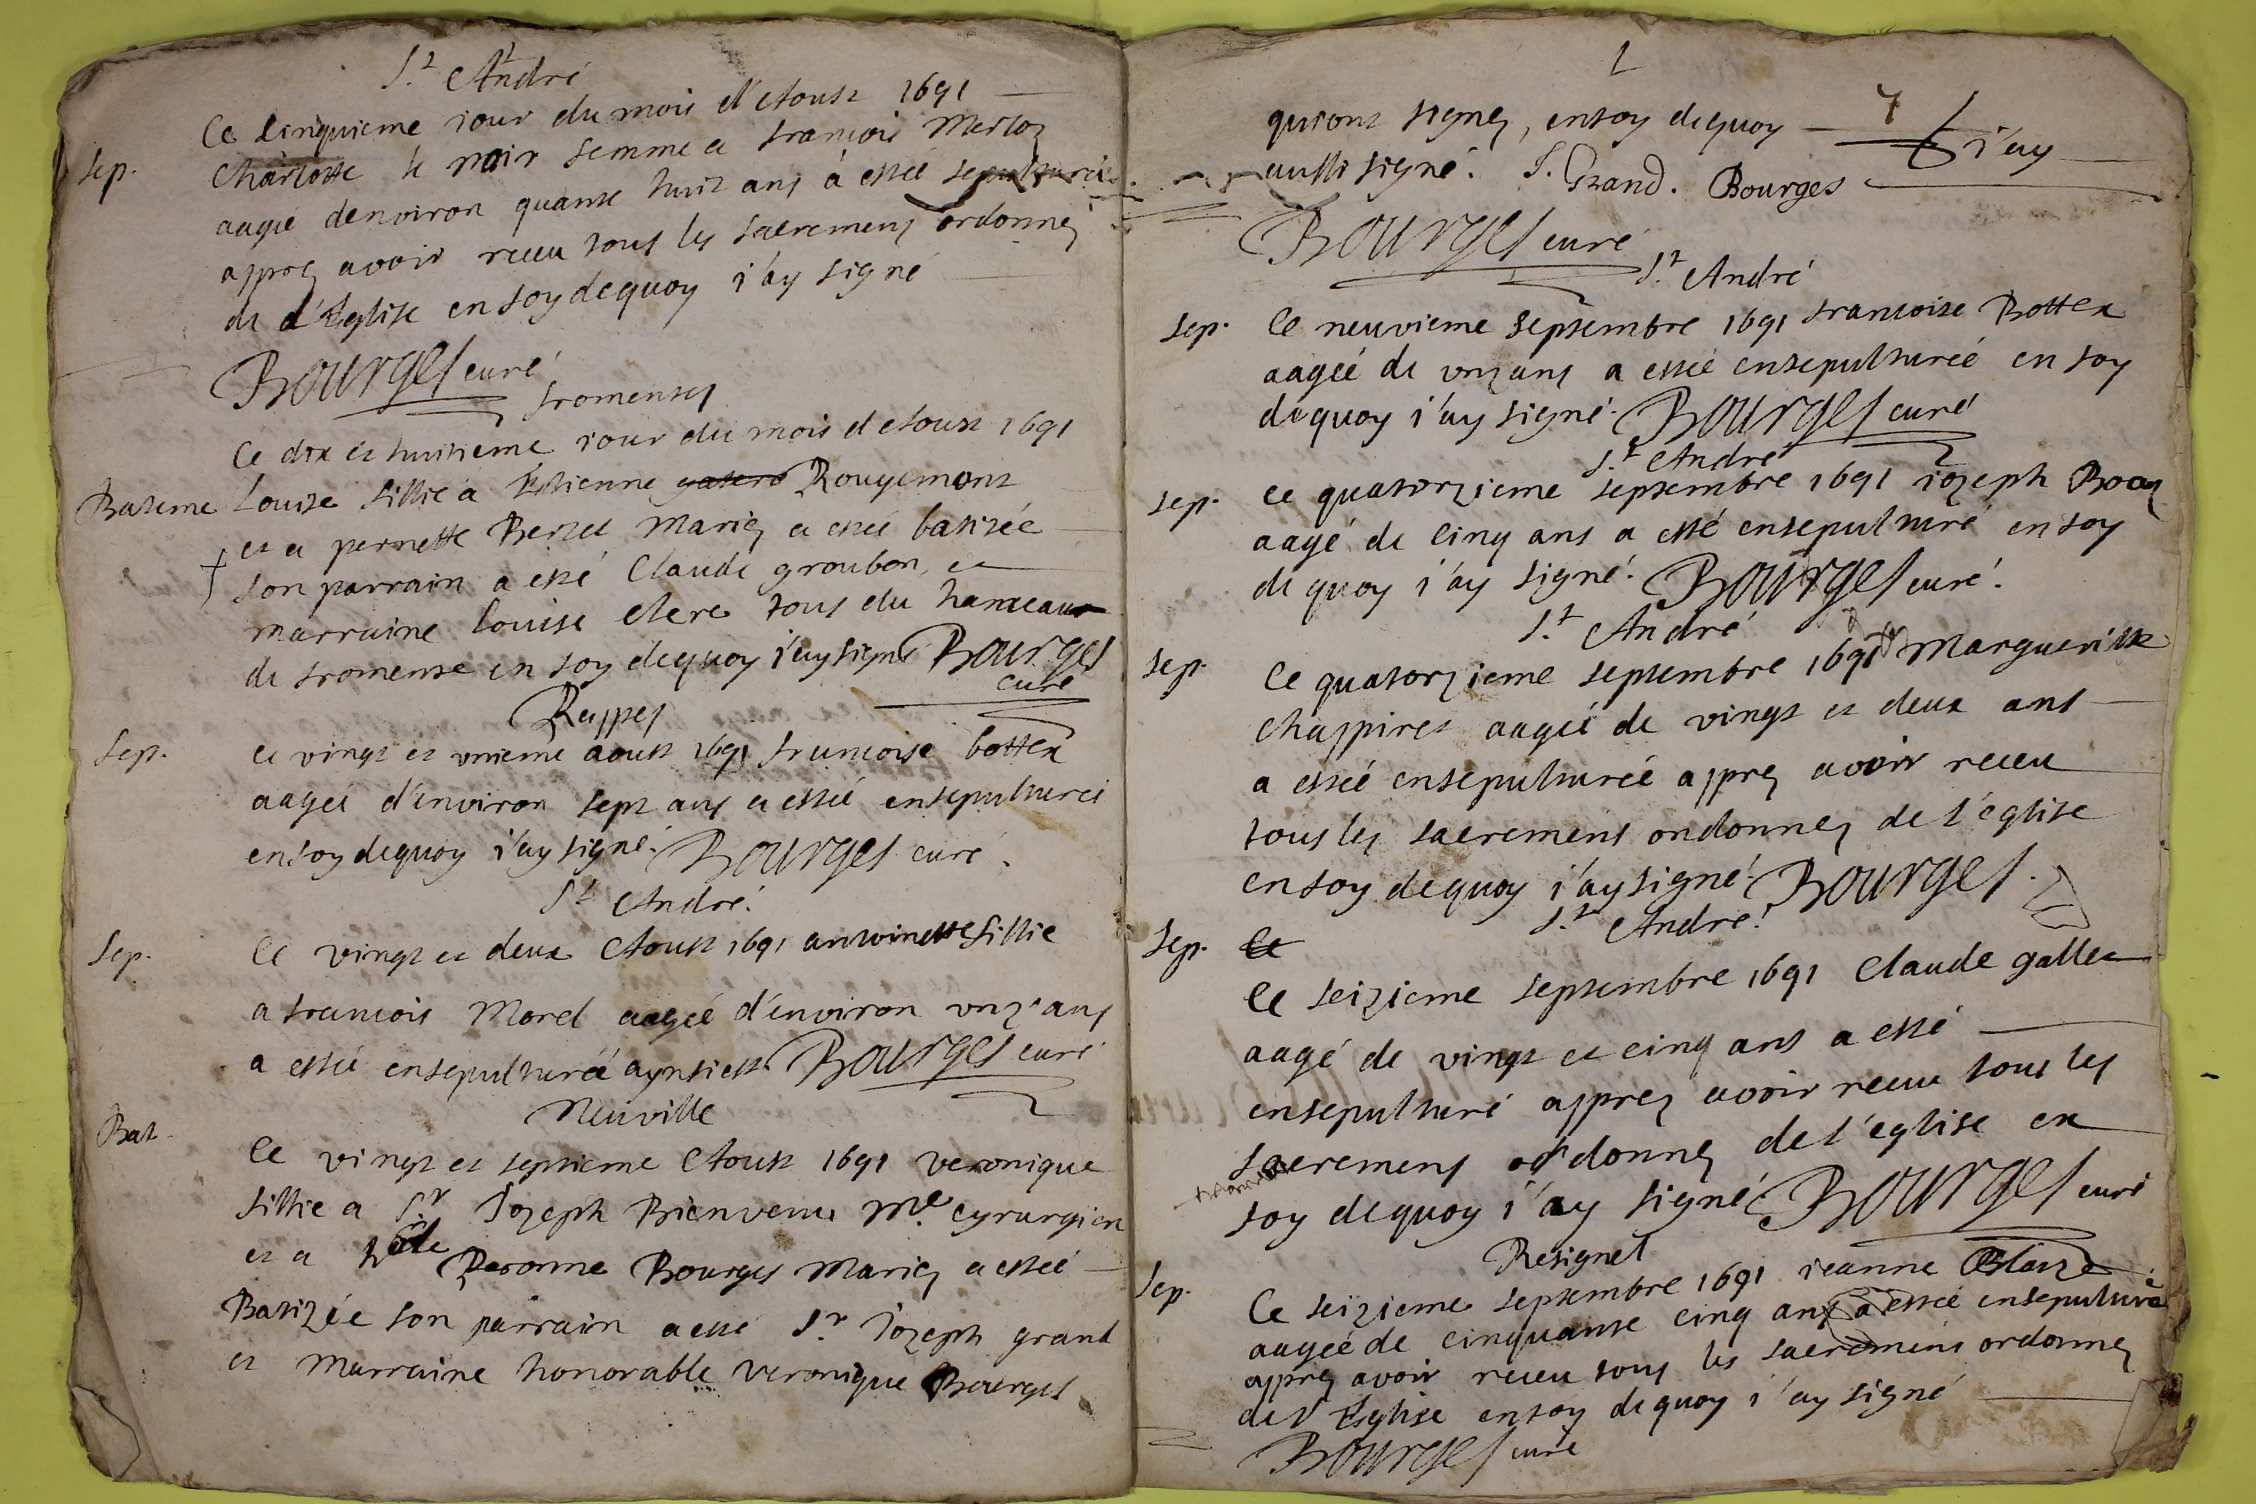 S.t André
Ce cinquieme iour du mois d'Aoust 1691
Sep. Charlotte le noir femme a francois Merloz
aagée denviron quante huit ans à estée sepulturée
apprez avoir receu tous les sacremens ordonnez
de l'Eglise en foy dequoy i'ay signé
Bourges curé
fromentes
Ce dix et huitieme iour du mois d Aoust 1691
Bateme Louise fillie a Estienne Rougemont
et a pernette Bertet Mariez a estée batizée
son parrain a esté Claude groubon, et
marraine louise clere tous du hameaux
de fromente en foy dequoy i'ay signé Bourges
curé
Rappes
Sep. ce vingt et vnieme aoust 1691 francoise bottex
aagée d'environ sept ans a estée ensepulturée
en foy dequoy i'ay signé. Bourges curé.
S.t André.
Sep. Ce vingt et deux Aoust 1691 antoinette fillie
a francois Morel aagée d'environ vnz ans
a estée ensepulturée Bourges curé
Neuville
Bat. Ce vingt et septieme Aoust 1691 veronique
fillie a S.r Iozeph Bienvenu M.e cyrurgien
et a Peronne Bourges Mariez a estée
Batizée son parrain a esté S.r Iozeph grand
et marraine honorable veronique Bourges
1
qui ont signez, en foy dequoy i'ay
aussi signé. J. Grand. Bourges
Bourges curé
S.t André
Sep. Ce neuvieme septembre 1691 francoise Bottex
aagée de vnz ans a estée ensepulturée en foy
dequoy i'ay signé. Bourges curé
S.t André
Sep. Ce quatorzieme septembre 1691 iozeph
aagé de cinq ans a esté ensepulturé en foy
de quoy i'ay signé. Bourges curé.
S.t André
Sep. Ce quatorzieme septembre 1691 Margueritte
Chappiret aagée de vingt et deux ans
a estée ensepulturée apprez avoir receu
tous les sacremens ordonnez de l'eglise
en foy dequoy i'ay signé. Bourges.
S.t André.
Sep. Ce
Ce seizieme septembre 1691 Claude gallet
aagé de vingt et cinq ans a esté
ensepulturé apprez avoir receu tous les
sacremens ordonnez de l'eglise en
foy dequoy i'ay signé Bourges curé
Resignel
Sep. Ce seizieme septembre 1691 ieanne Blaize
aagée de cinquante cinq ans a estée ensepulturée
apprez avoir receu tous les sacremens ordonnez
de l'Eglise en foy de quoy i'ay signé
Bourges curé